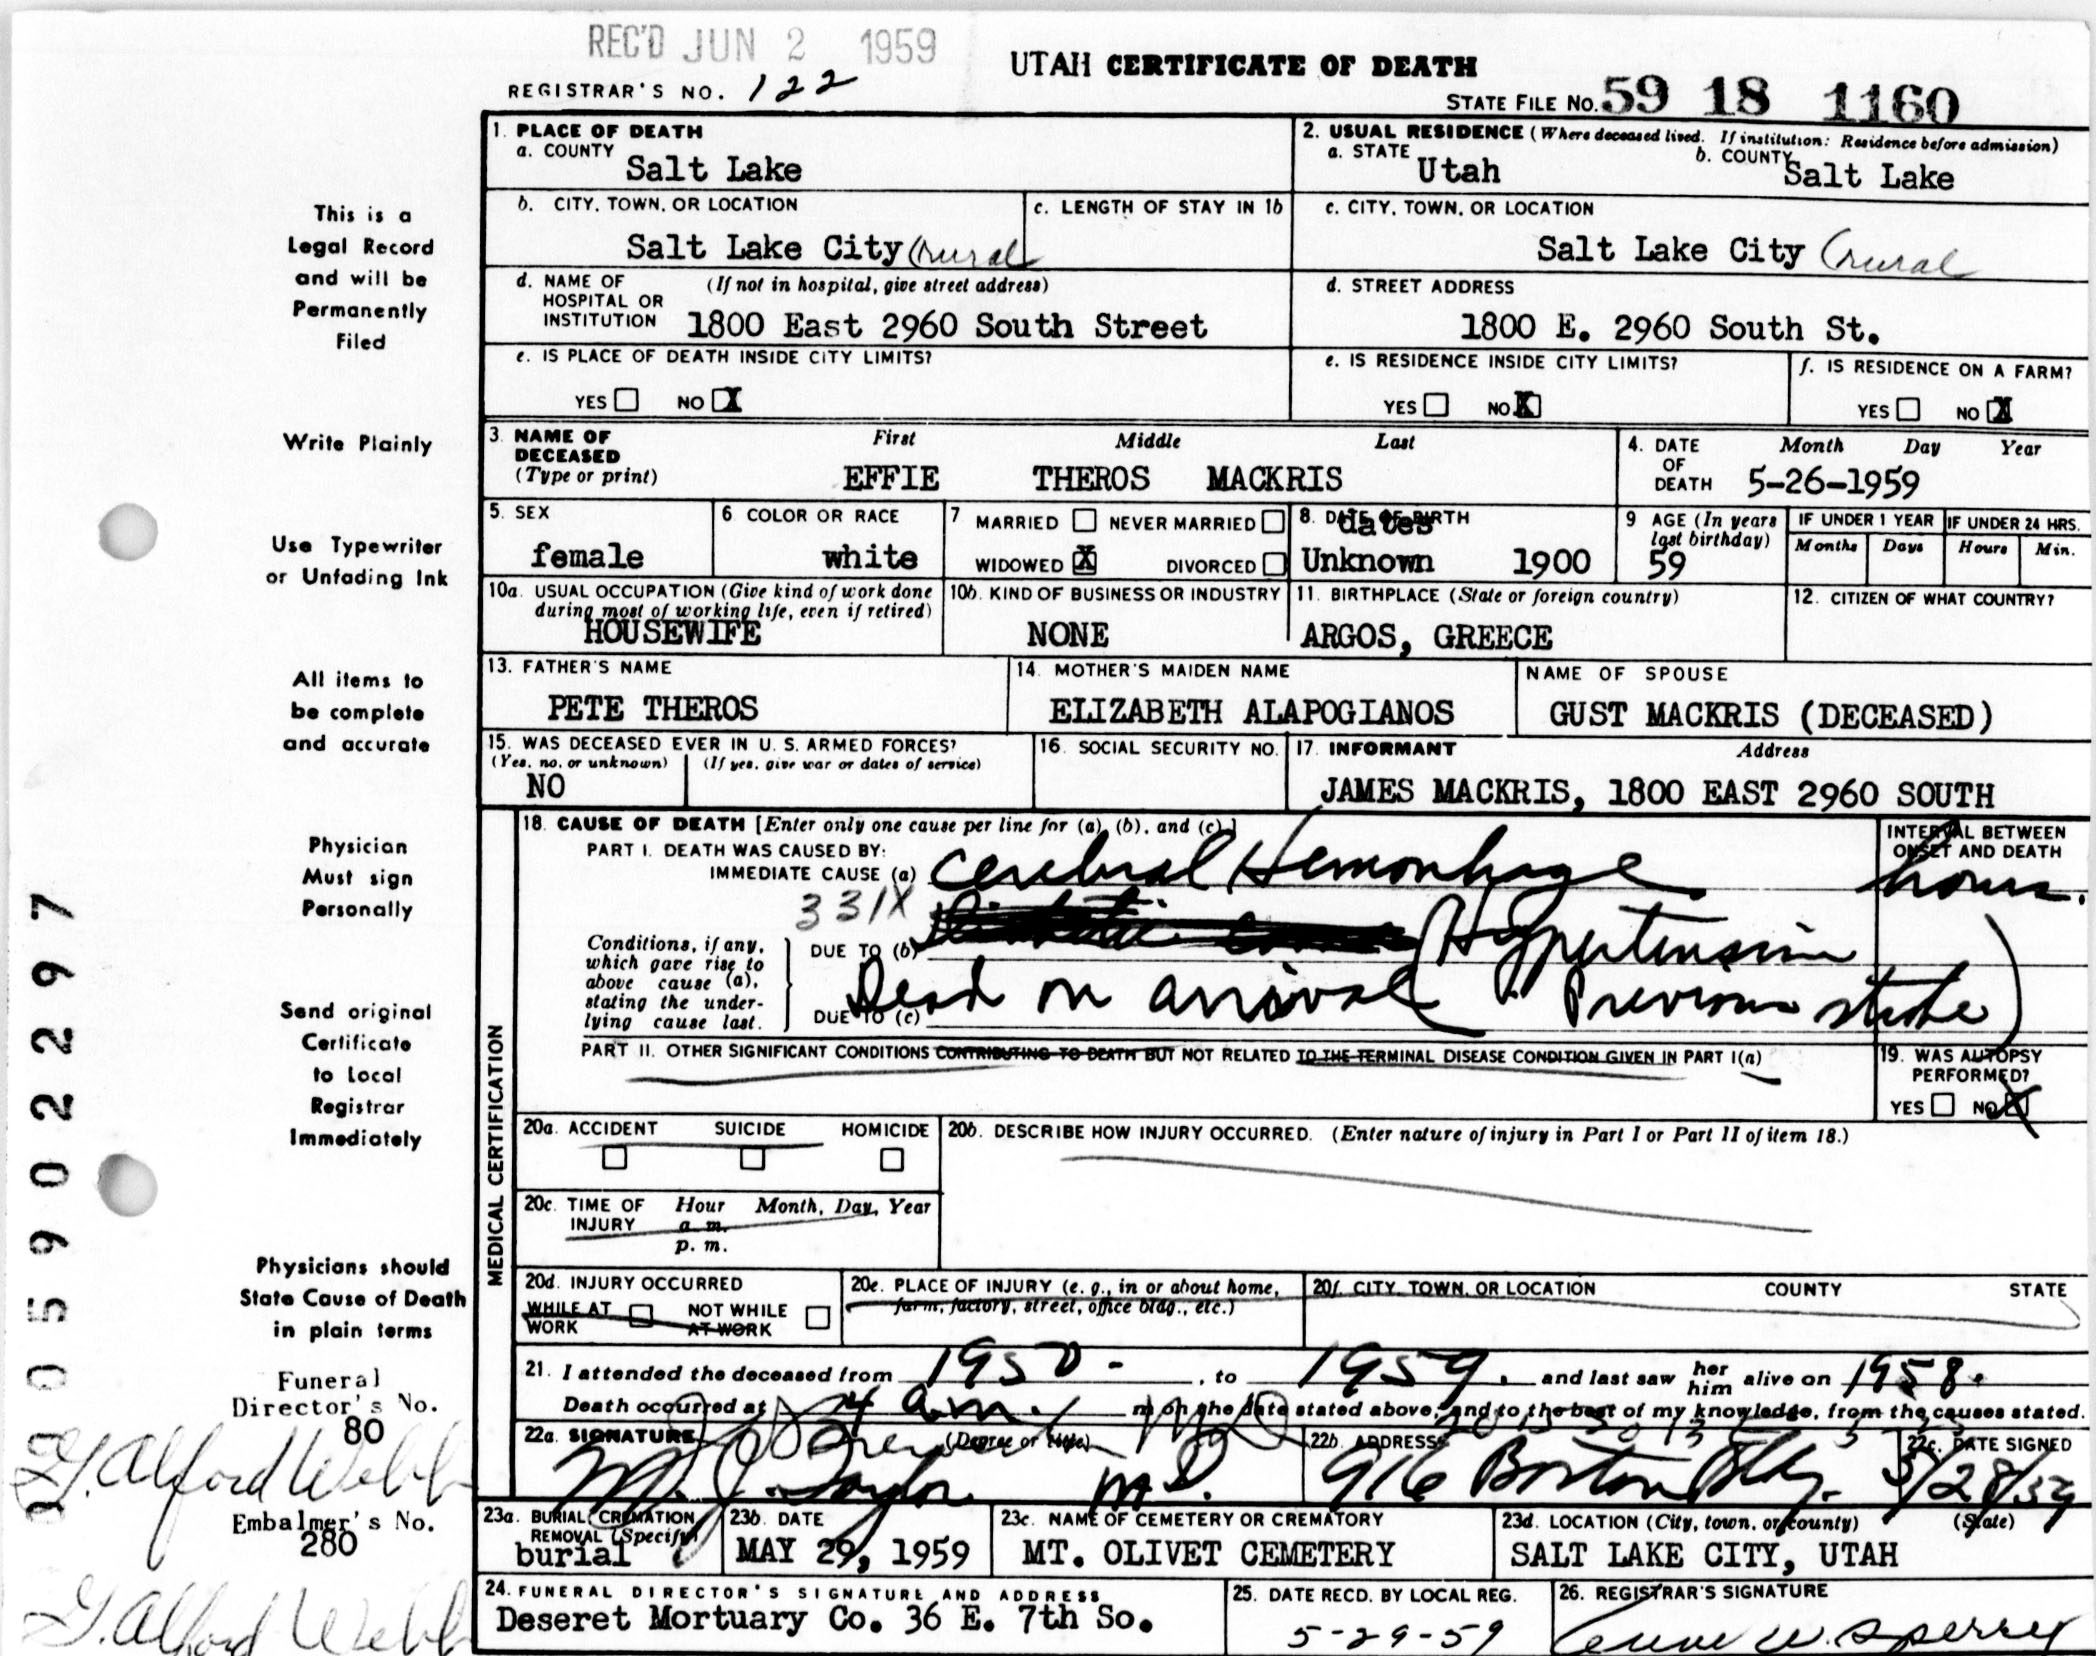 REC'D JUN 2 1959
UTAH CERTIFICATE OF DEATH
REGISTRAR'S NO. 122
STATE FILE NO. 59 18 1160
This is a
Legal Record
and will be
Permanently
Filed
Write Plainly
Use Typewriter
or Unfading Ink
All items to
be complete
and accurate
Physician
Must sign
Personally
Send original
Certificate
to Local
Registrar
Immediately
Physicians should
State Cause of Death
in plain terms
Funeral
Director's No.
80
G. Alford Webb
Embalmer's No.
280
G. Alford Webb
1. PLACE OF DEATH
a. COUNTY
Salt Lake
2. USUAL RESIDENCE (Where deceased lived. If institution: Residence before admission)
a. STATE Utah b. COUNTY Salt Lake
b. CITY, TOWN, OR LOCATION
Salt Lake City (rural
c. LENGTH OF STAY IN 1b
c. CITY, TOWN, OR LOCATION
Salt Lake City (rural
d. NAME OF HOSPITAL OR INSTITUTION (If not in hospital, give street address)
1800 East 2960 South Street
d. STREET ADDRESS
1800 E. 2960 South St.
e. IS PLACE OF DEATH INSIDE CITY LIMITS?
YES NO X
e. IS RESIDENCE INSIDE CITY LIMITS?
YES NO X
f. IS RESIDENCE ON A FARM?
YES NO X
3. NAME OF DECEASED (Type or print)
First Middle Last
EFFIE THEROS MACKRIS
4. DATE OF DEATH Month Day Year
5-26-1959
5. SEX
female
6 COLOR OR RACE
white
7 MARRIED NEVER MARRIED
WIDOWED X DIVORCED
8. DATE OF BIRTH
dates
Unknown 1900
9 AGE (In years last birthday)
59
IF UNDER 1 YEAR
Months Days
IF UNDER 24 HRS.
Hours Min.
10a. USUAL OCCUPATION (Give kind of work done during most of working life, even if retired)
HOUSEWIFE
10b. KIND OF BUSINESS OR INDUSTRY
NONE
11. BIRTHPLACE (State or foreign country)
ARGOS, GREECE
12. CITIZEN OF WHAT COUNTRY?
13. FATHER'S NAME
PETE THEROS
14. MOTHER'S MAIDEN NAME
ELIZABETH ALAPOGIANOS
NAME OF SPOUSE
GUST MACKRIS (DECEASED)
15. WAS DECEASED EVER IN U. S. ARMED FORCES?
(Yes, no, or unknown) (If yes, give war or dates of service)
NO
16. SOCIAL SECURITY NO.
17. INFORMANT Address
JAMES MACKRIS, 1800 EAST 2960 SOUTH
MEDICAL CERTIFICATION
18. CAUSE OF DEATH [Enter only one cause per line for (a), (b), and (c).]
PART I. DEATH WAS CAUSED BY:
IMMEDIATE CAUSE (a) Cerebral Hemorrhage
INTERVAL BETWEEN ONSET AND DEATH
hours.
331X
Conditions, if any, which gave rise to above cause (a), stating the underlying cause last.
DUE TO (b) (Hypertension
DUE TO (c) Dead on arrival Previous stroke)
PART II. OTHER SIGNIFICANT CONDITIONS CONTRIBUTING TO DEATH BUT NOT RELATED TO THE TERMINAL DISEASE CONDITION GIVEN IN PART I(a)
19. WAS AUTOPSY PERFORMED?
YES NO X
20a. ACCIDENT SUICIDE HOMICIDE
20b. DESCRIBE HOW INJURY OCCURRED. (Enter nature of injury in Part I or Part II of item 18.)
20c. TIME OF INJURY Hour Month, Day, Year
a. m.
p. m.
20d. INJURY OCCURRED
WHILE AT WORK NOT WHILE AT WORK
20e. PLACE OF INJURY (e. g., in or about home, farm, factory, street, office bldg., etc.)
20f. CITY, TOWN, OR LOCATION COUNTY STATE
21. I attended the deceased from 1950 - , to 1959. and last saw her him alive on 1958.
Death occurred at 4 a.m. m on the date stated above, and to the best of my knowledge, from the causes stated.
22a. SIGNATURE (Degree or title)
M. J. Taylor M.D.
22b. ADDRESS
916 Boston Bldg.
22c. DATE SIGNED
5/28/59
23a. BURIAL, CREMATION REMOVAL (Specify)
burial
23b. DATE
MAY 29, 1959
23c. NAME OF CEMETERY OR CREMATORY
MT. OLIVET CEMETERY
23d. LOCATION (City, town, or county) (State)
SALT LAKE CITY, UTAH
24. FUNERAL DIRECTOR'S SIGNATURE AND ADDRESS
Deseret Mortuary Co. 36 E. 7th So.
25. DATE RECD. BY LOCAL REG.
5-29-59
26. REGISTRAR'S SIGNATURE
W. Sperry